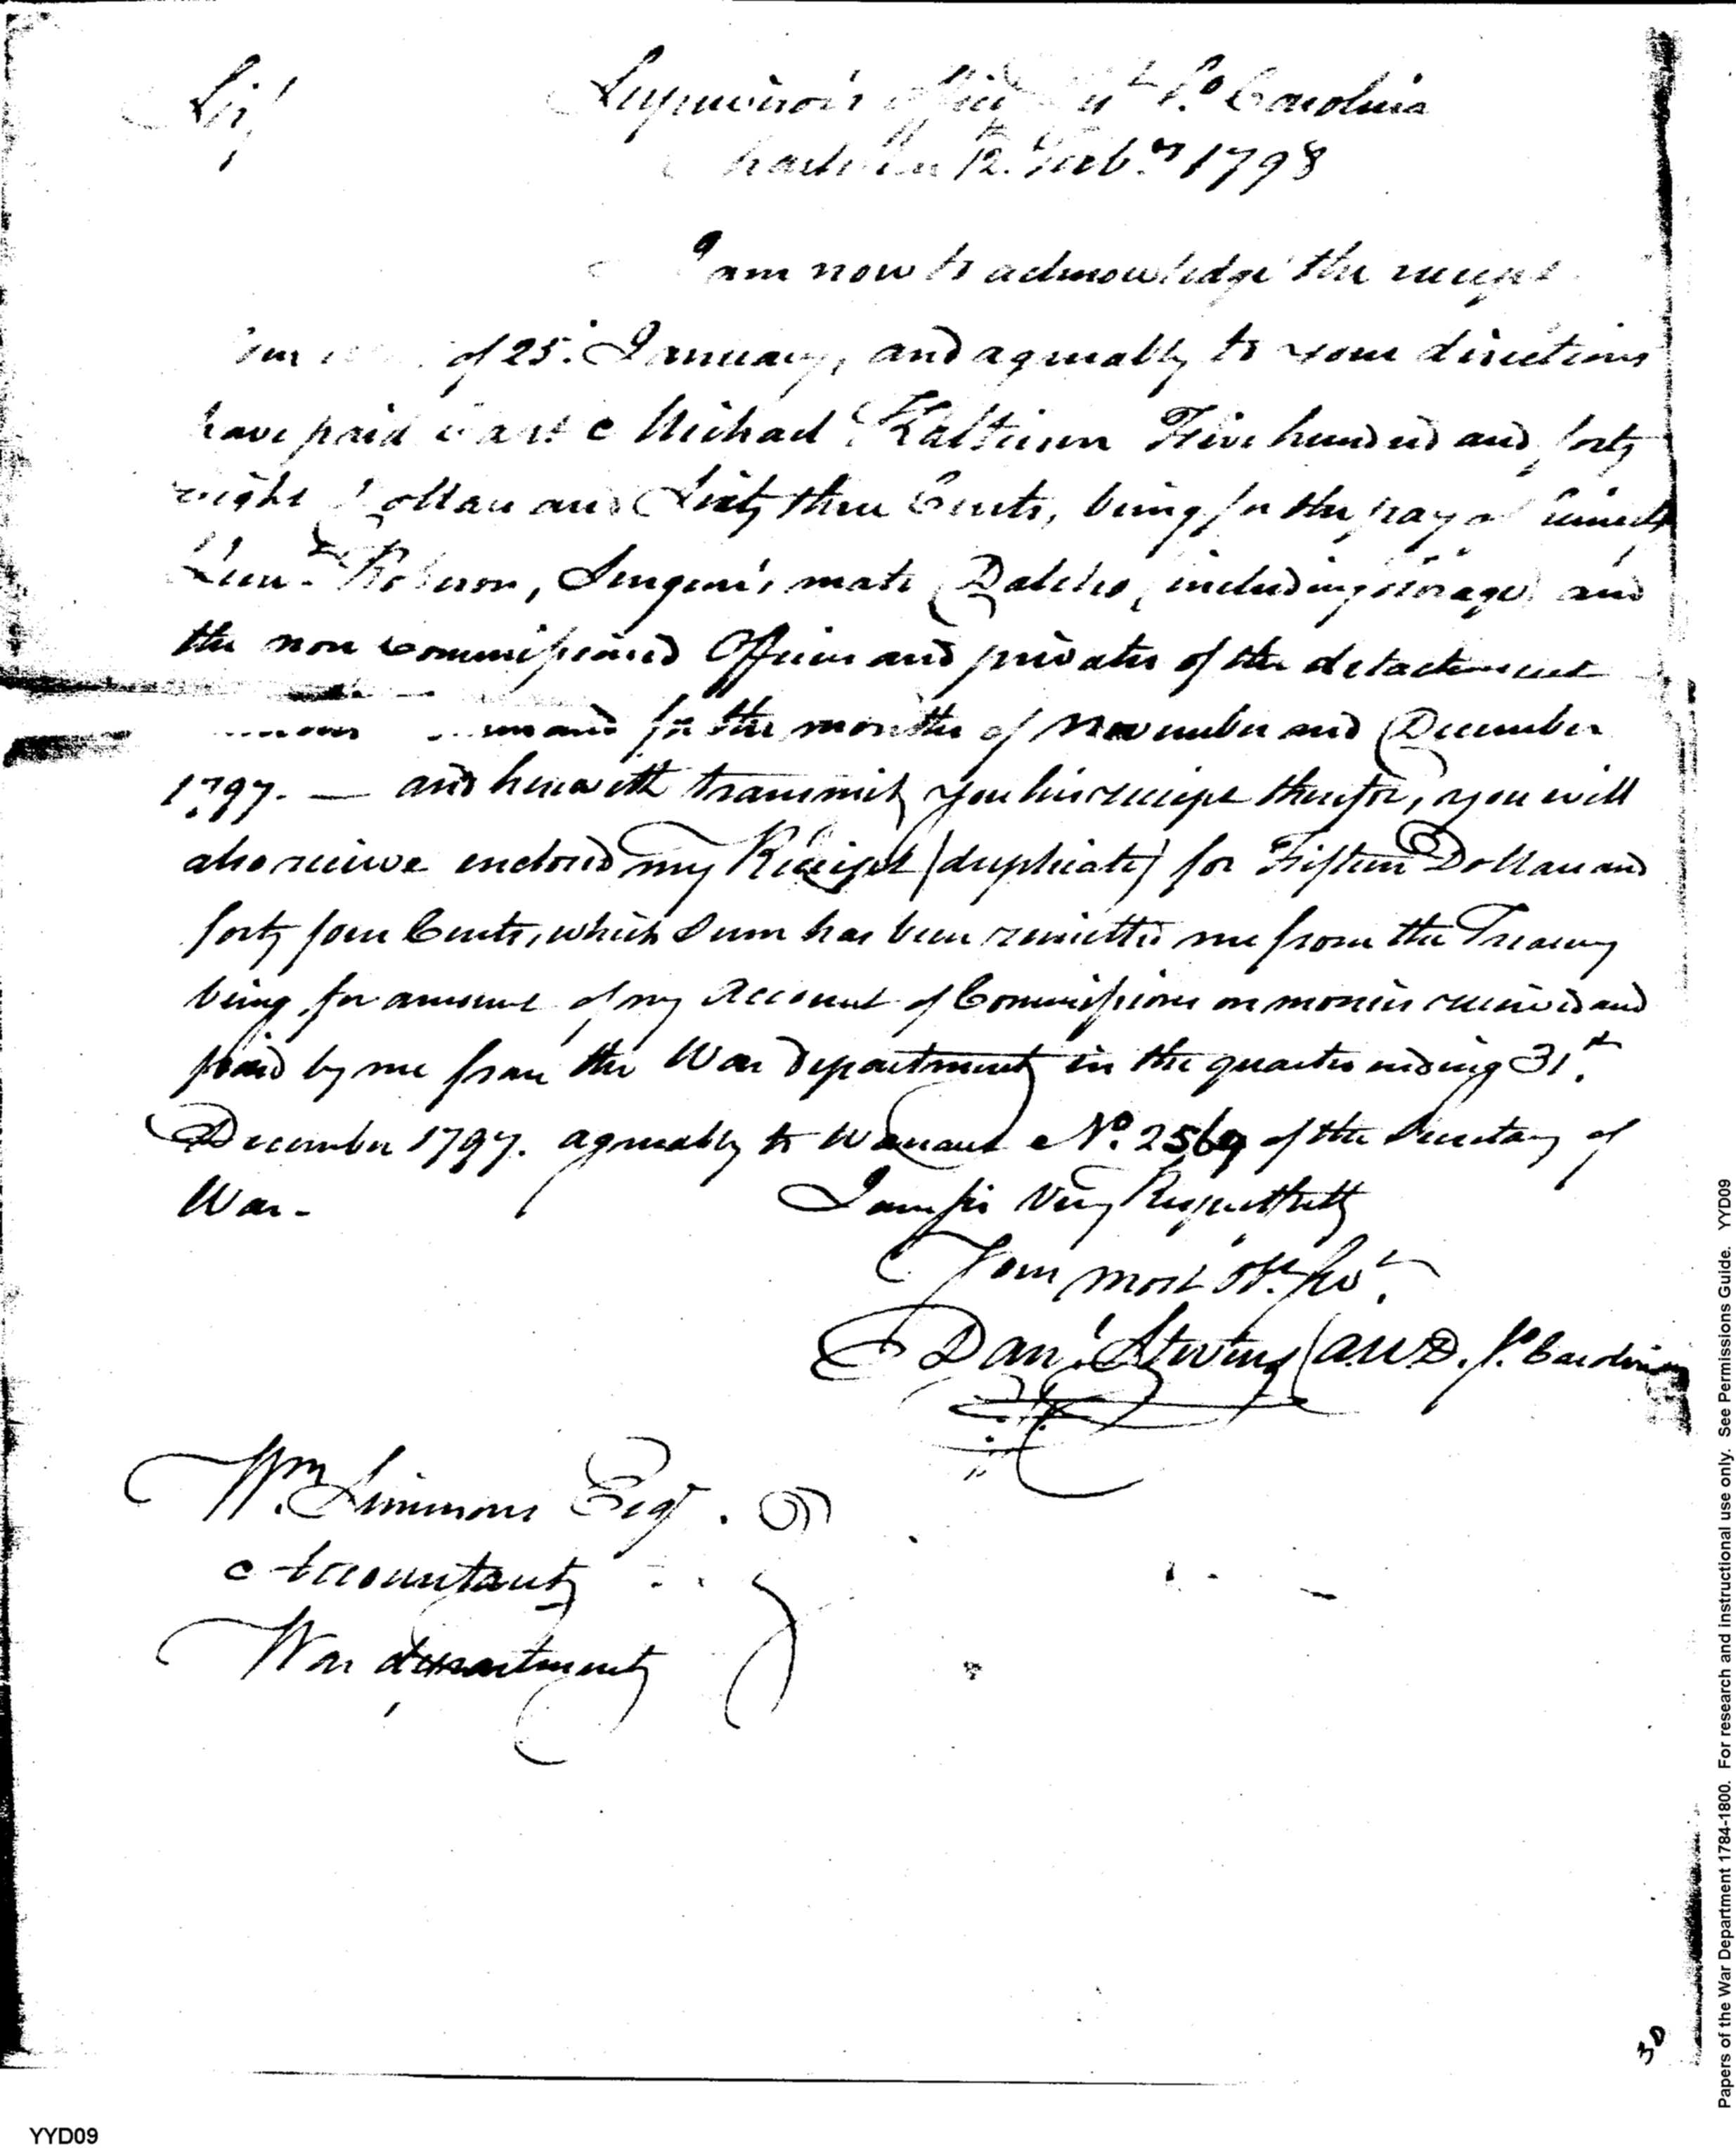 Sir,
Supervisor's Office So. Carolina
12th Feby. 1798
I am now to acknowledge the receipt
of 25. January, and agreeably to your directions
have paid Michael Kalteisen Five hundred and forty
eight Dollars and Sixty three Cents, being for the pay of himself
Lieut. Roberson, Surgeon's mate Dalcho, including forage and
the non Commissioned Officers and privates of the detachment
for the months of November and December
1797. — and herewith transmit you his receipt therefor, you will
also receive enclosed my Receipt (duplicate) for Fifteen Dollars and
forty four Cents, which Sum has been remitted me from the Treasury
being for amount of my Account of Commissions on monies received and
paid by me from the War department in the quarter ending 31st.
December 1797. agreeably to Warrant No. 2569 of the Secretary of
War.
I am Sir Very Respectfully
Your most Ob. Sert.
Danl. Stevens (A.W.D. So. Carolina
Wm. Simmons Esqr.
Accountant
War department
30
YYD09
Papers of the War Department 1784-1800. For research and instructional use only. See Permissions Guide. YYD09